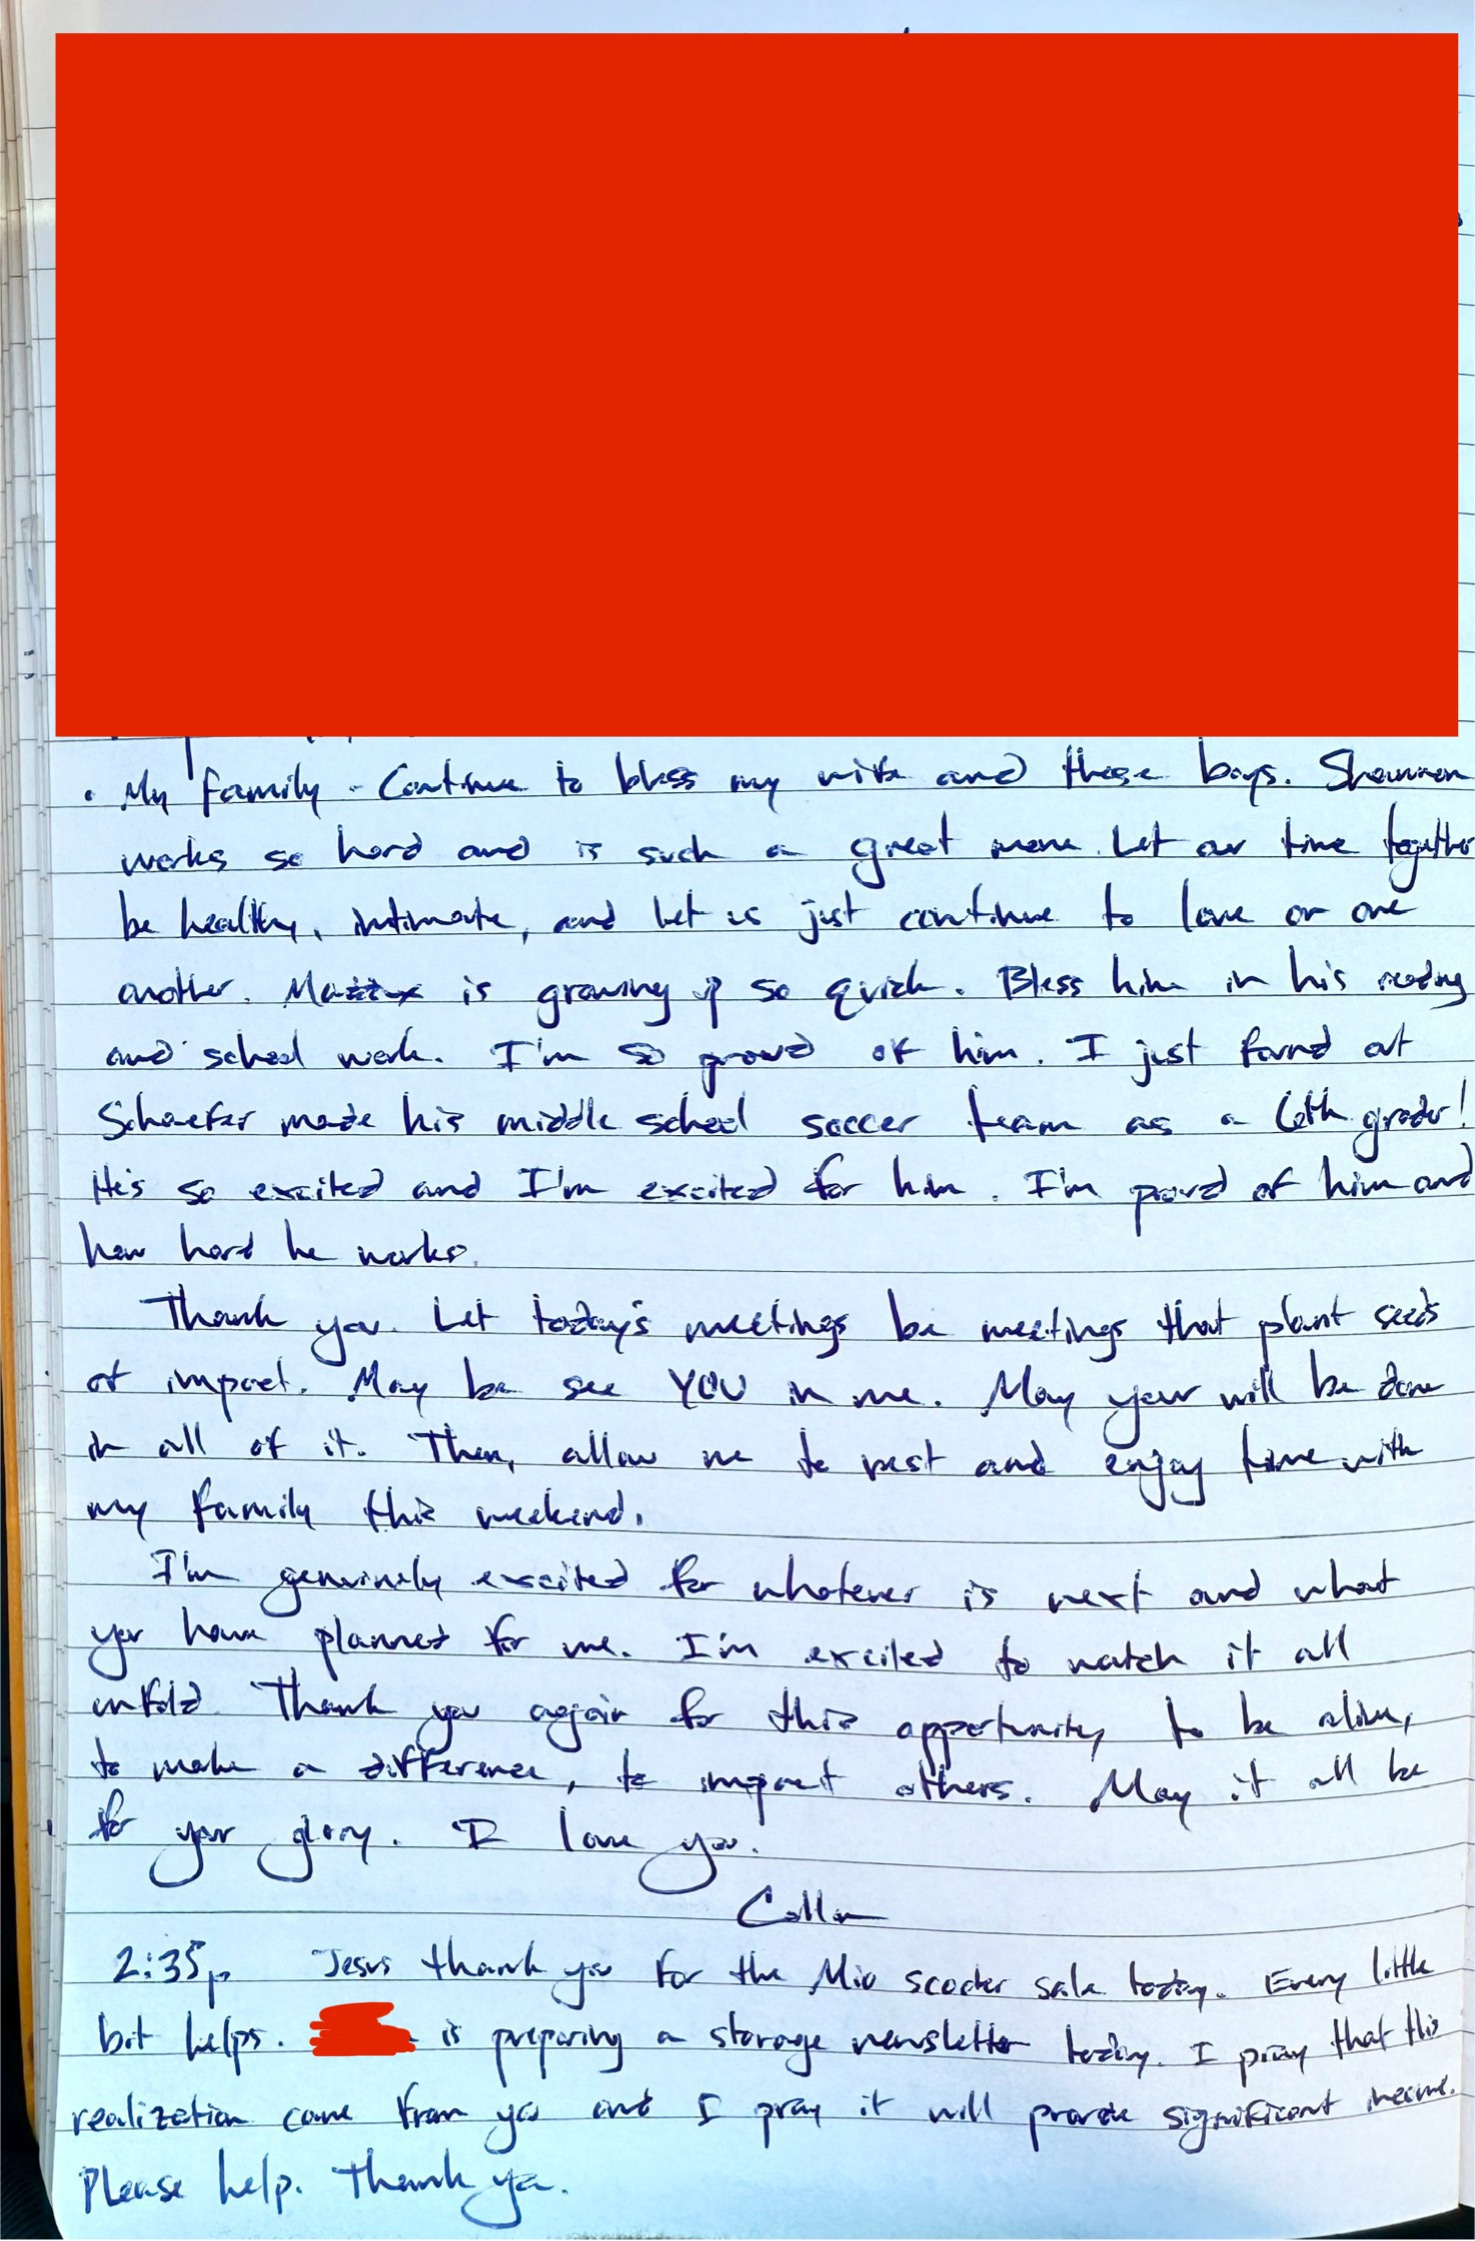 • My family - Continue to bless my wife and these boys. Shannon
works so hard and is such a great mom. Let our time together
be healthy, intimate, and let us just continue to love on one
another. is growing up so quick. Bless him in his reading
and school work. I'm so proud of him. I just found out
Schaefer made his middle school soccer team as a 6th grader!
He's so excited and I'm excited for him. I'm proud of him and
how hard he works.
Thank you. Let today's meetings be meetings that plant seeds
of impact. May be see YOU in me. May your will be done
in all of it. Then, allow me to rest and enjoy time with
my family this weekend.
I'm genuinely excited for whatever is next and what
you have planned for me. I'm excited to watch it all
unfold. Thank you again for this opportunity to be alive,
to make a difference, to impact others. May it all be
for your glory. I love you.
2:35p Jesus thank you for the Mio scooter sale today. Every little
bit helps. is preparing a storage newsletter today. I pray that this
realization came from you and I pray it will provide significant income.
Please help. Thank you.